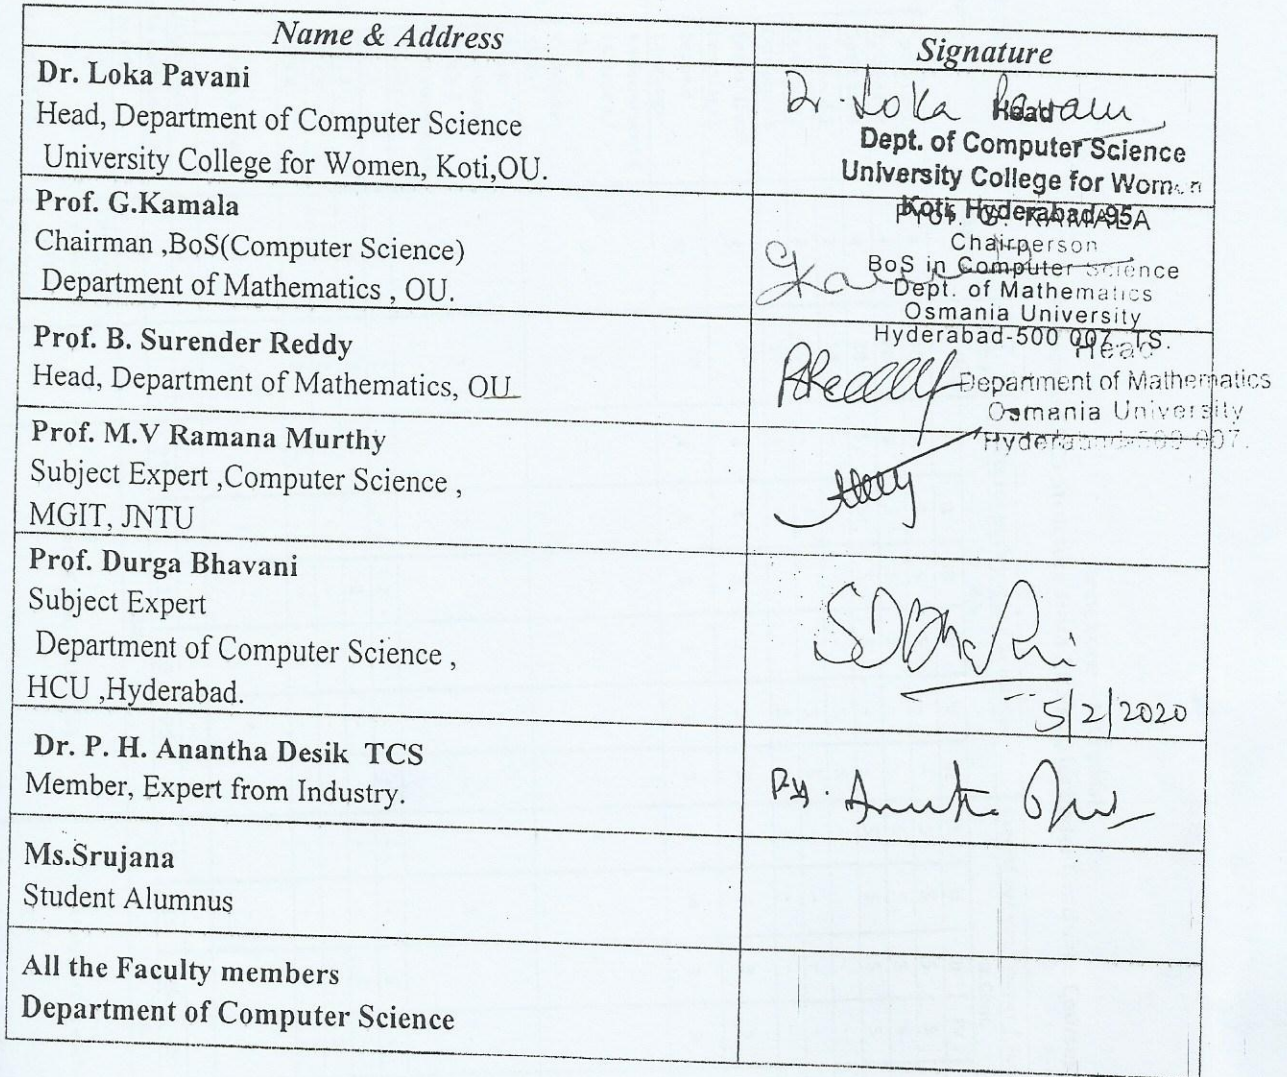 Name & Address
Signature
Dr. Loka Pavani
Head, Department of Computer Science
University College for Women, Koti,OU.
Dr. Loka Pavani
Head
Dept. of Computer Science
University College for Women
Koti, Hyderabad-95
Prof. G.Kamala
Chairman ,BoS(Computer Science)
Department of Mathematics , OU.
Prof. G. KAMALA
Chairperson
BoS in Computer Science
Dept. of Mathematics
Osmania University
Hyderabad-500 007. TS.
Prof. B. Surender Reddy
Head, Department of Mathematics, OU
Head
Department of Mathematics
Osmania University
Hyderabad-500 007.
Prof. M.V Ramana Murthy
Subject Expert ,Computer Science ,
MGIT, JNTU
Prof. Durga Bhavani
Subject Expert
Department of Computer Science ,
HCU ,Hyderabad.
5/2/2020
Dr. P. H. Anantha Desik TCS
Member, Expert from Industry.
Ms.Srujana
Student Alumnus
All the Faculty members
Department of Computer Science